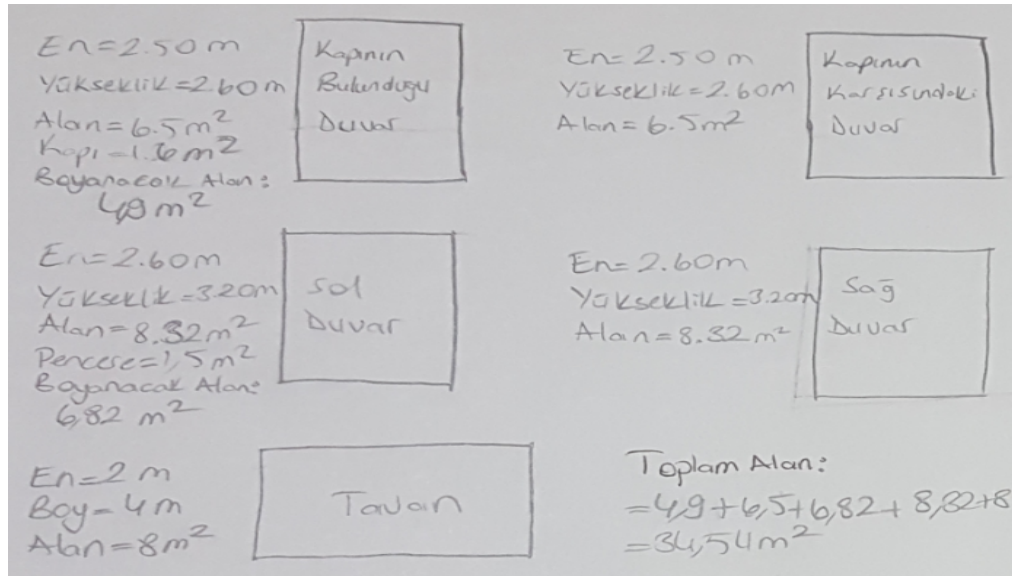 En=2.50 m
Yükseklik=2.60m
Alan=6.5m²
Kapı=1.6m²
Boyanacak Alan:
4,9 m²
Kapının
Bulunduğu
Duvar
En=2.50 m
Yükseklik=2.60m
Alan=6.5m²
Kapının
Karşısındaki
Duvar
En=2.60m
Yükseklik=3.20m
Alan=8.32m²
Pencere=1,5m²
Boyanacak Alan:
6,82 m²
Sol
Duvar
En=2.60m
Yükseklik=3.20m
Alan=8.32m²
Sağ
Duvar
En=2 m
Boy=4m
Alan=8m²
Tavan
Toplam Alan:
=4,9+6,5+6,82+8,32+8
=34,54m²